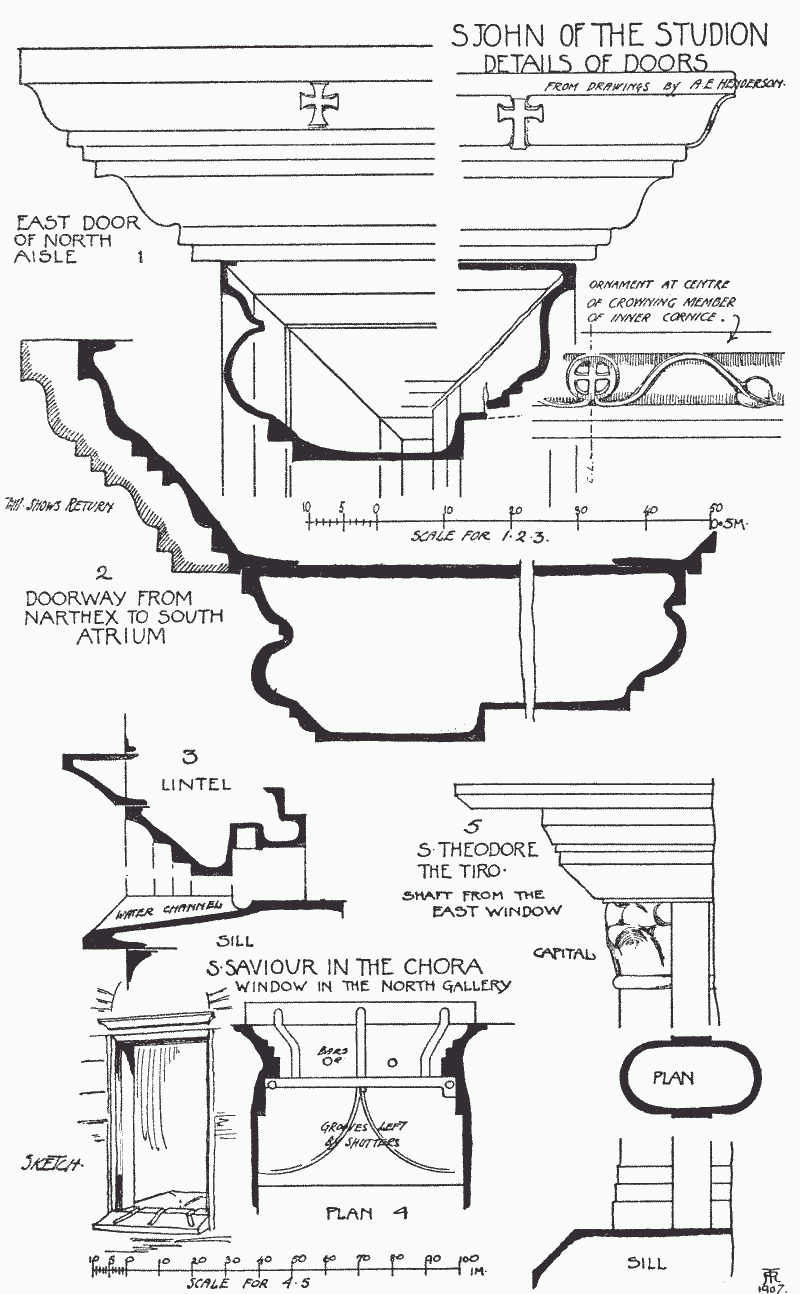 S JOHN OF THE STUDION
DETAILS OF DOORS
FROM DRAWINGS BY A E HENDERSON.
EAST DOOR
OF NORTH
AISLE 1
ORNAMENT AT CENTRE
OF CROWNING MEMBER
OF INNER CORNICE.
SHOWS RETURN
10 5 0 10 20 30 40 50
0·5M.
SCALE FOR 1·2·3.
2
DOORWAY FROM
NARTHEX TO SOUTH
ATRIUM
3
LINTEL
WATER CHANNEL
SILL
5
S·THEODORE
THE TIRO·
SHAFT FROM THE
EAST WINDOW
CAPITAL
PLAN
SILL
S·SAVIOUR IN THE CHORA
WINDOW IN THE NORTH GALLERY
BARS
OF
GROOVES LEFT
BY SHUTTERS
SKETCH·
PLAN 4
10 5 0 10 20 30 40 50 60 70 80 90 100
1M.
SCALE FOR 4·5
1907.